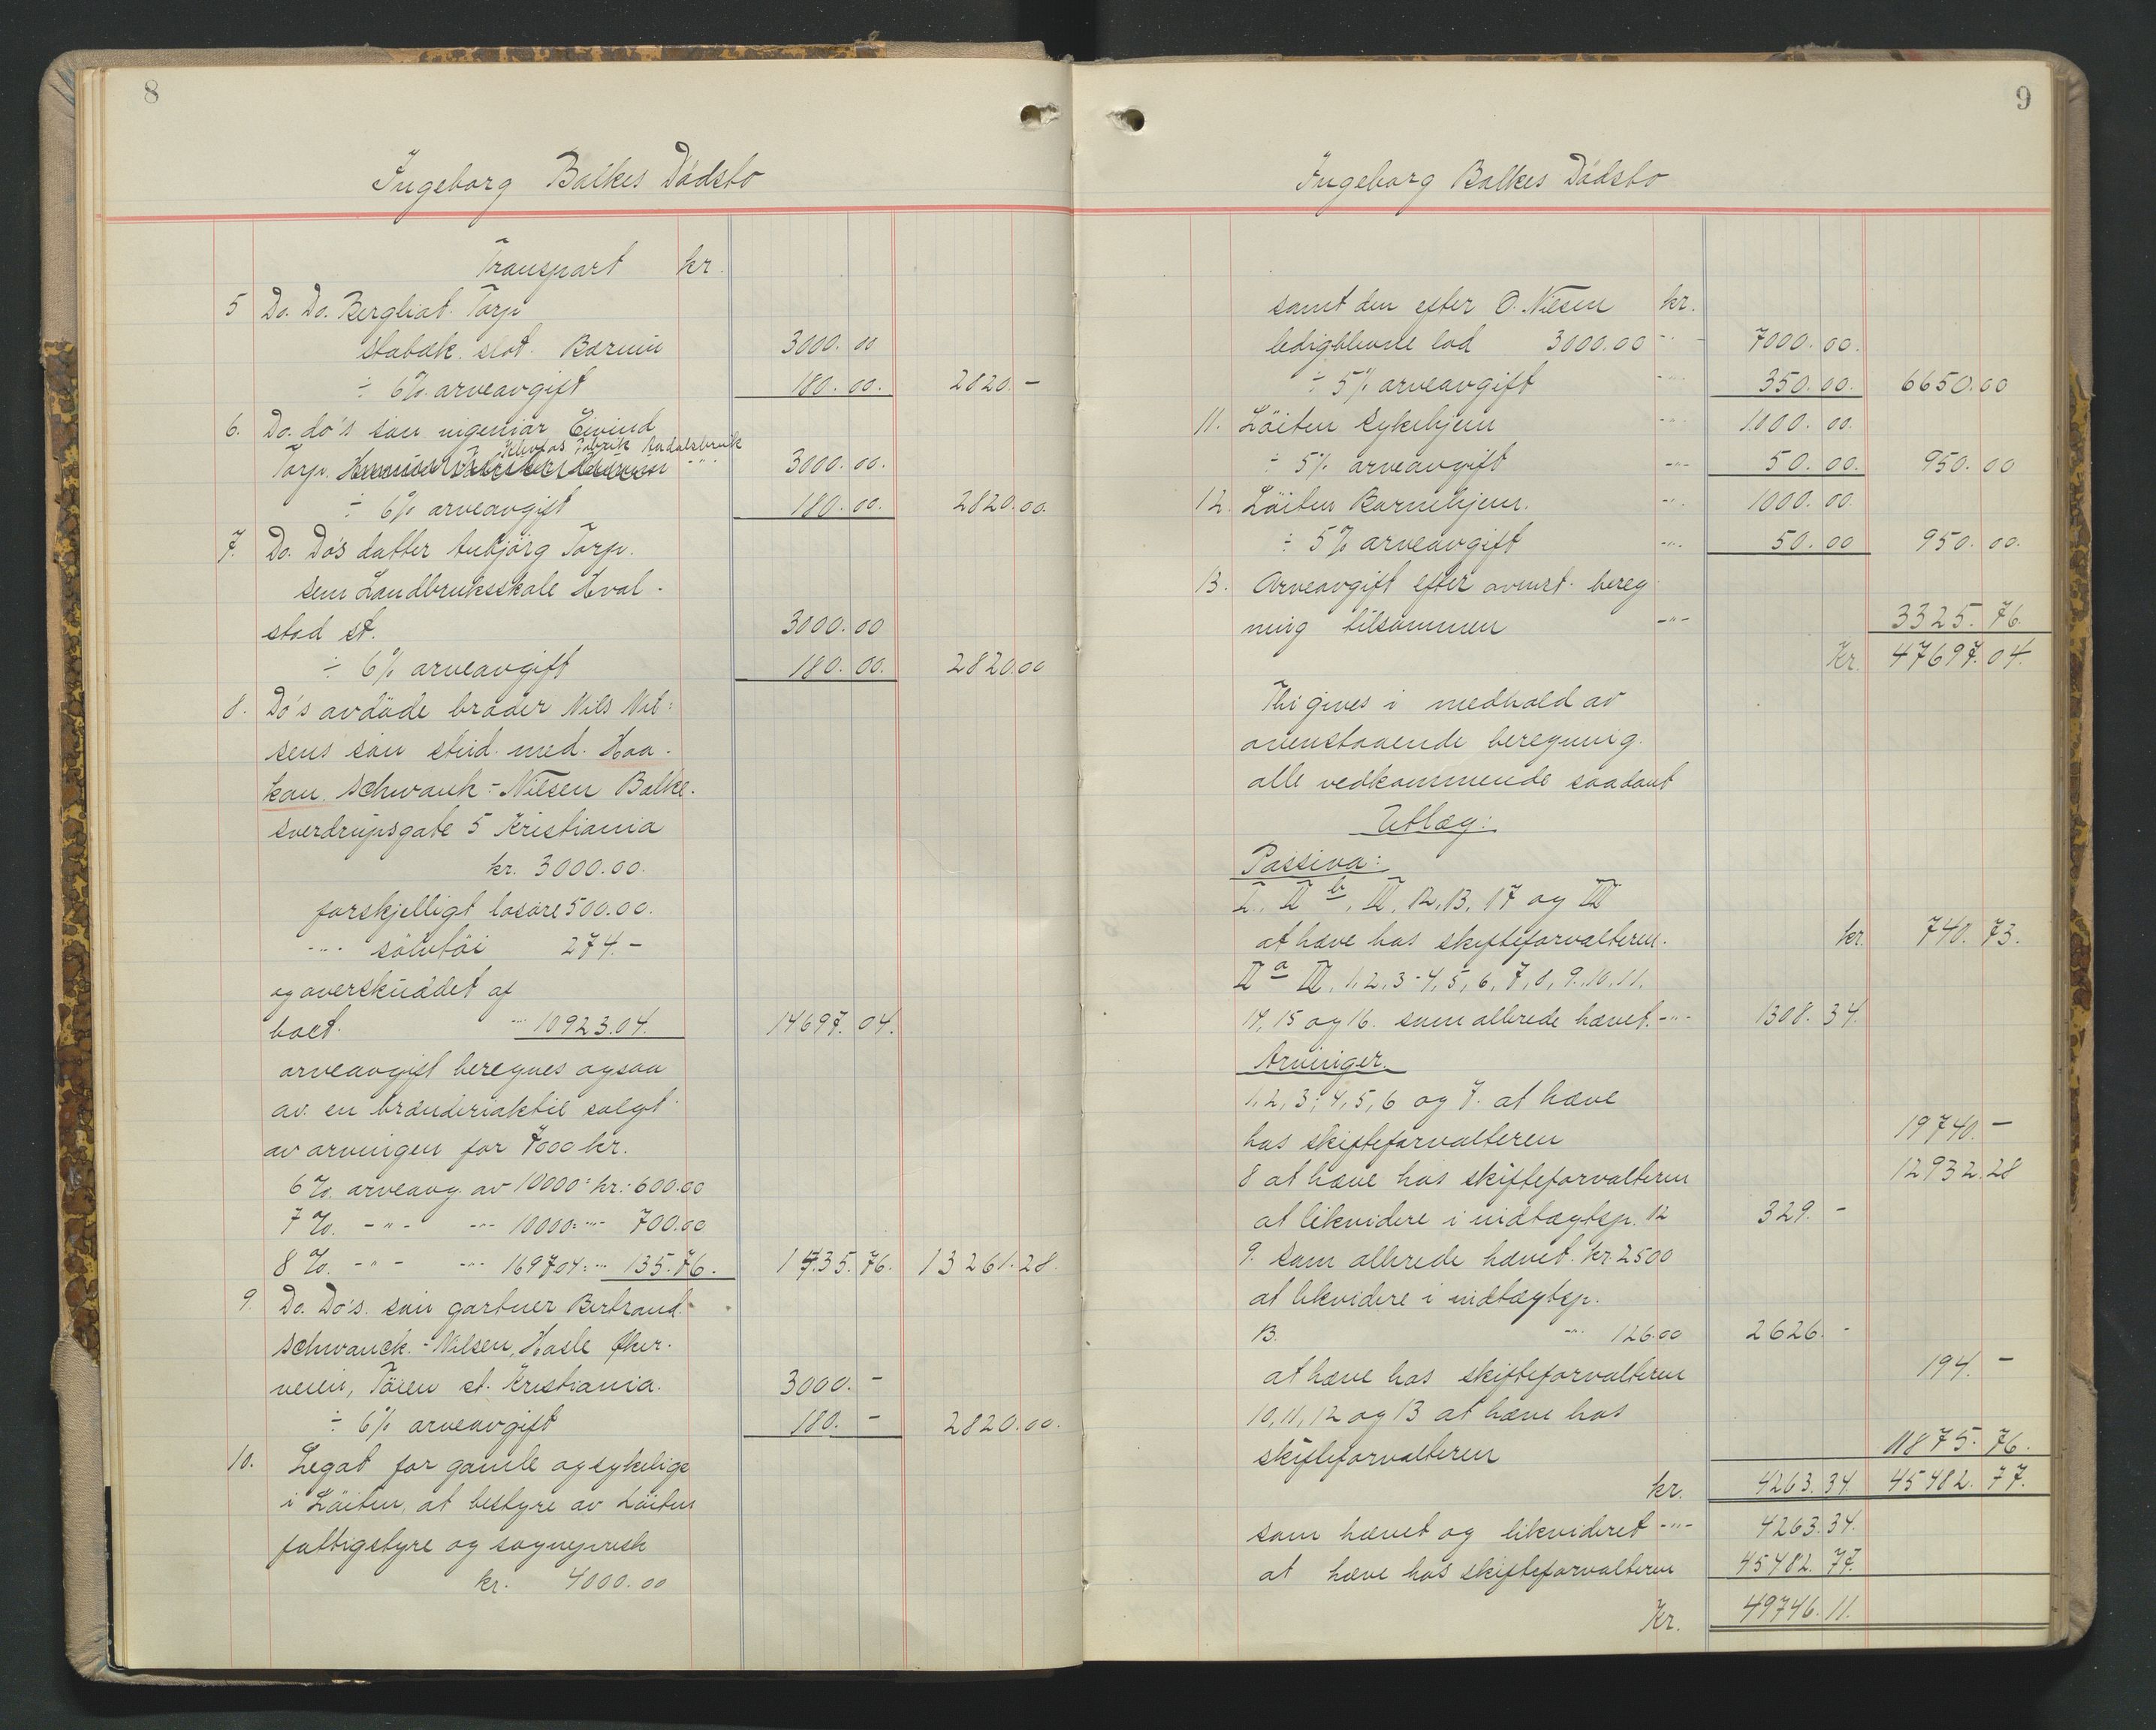 8
Ingeborg Balkes Dödsbo
Transport kr.
5 Do. Do. Bergliot Torp
Stabæk slot. Bærum 3000.00
÷ 6% arveavgift 180.00. 2820.-
6. Do. do's sön ingeniør Eivind
Klevfos Fabrik Aadalsbruk
Torp. 3000.00.
÷ 6% arveavgift 180.00. 2820.00.
7. Do. Do's datter Anbjörg Torp.
Sem Landbruksskole Hval-
stad st. 3000.00
÷ 6% arveavgift 180.00. 2820.00
8. Do's avdøde broder Nils Nil-
sens sön stud. med. Haa-
kon. Schwank-Nilsen Balke.
Sverdrupsgate 5 Kristiania
kr. 3000.00.
forskjelligt løsøre 500.00.
-"- sölvtöi 274.-
og overskuddet af
boet. -"- 10923.04. 14697.04.
arveavgift beregnes ogsaa
av en brænderiaktie solgt
av arvingen for 7000 kr.
6%. arveavg. av 10000: kr: 600.00
7%. -"- -"- 10000: -"- 700.00
8%. -"- -"- 169704: -"- 135.76. 1435.76. 13261.28.
9. Do. Do's. sön gartner Bertrand
Schwanck.-Nilsen, Hasle Øker-
veien, Töien st. Kristiania. 3000.-
÷ 6% arveavgift 180.- 2820.00.
10. Legat for gamle og sykelige
i Löiten, at bestyre av Löiten
fattigstyre og sogneprest
kr. 4000.00
9
Ingeborg Balkes Dödsbo
samt den efter O. Nilsen kr.
ledigblevne lod 3000.00 -"- 7000.00.
÷ 5% arveavgift -"- 350.00. 6650.00
11. Löiten Sykehjem -"- 1000.00.
÷ 5% arveavgift -"- 50.00. 950.00
12. Löiten Barnehjem. -"- 1000.00.
÷ 5% arveavgift -"- 50.00 950.00.
13. Arveavgift efter ovenst. bereg
ning tilsammen -"- 3325.76.
Kr. 47697.04.
Thi gives i medhold av
ovenstaaende beregning.
alle vedkommende saadant
Utlæg:
Passiva:
I., II b, III, 12, 13, 17 og IIII
at hæve hos skifteforvalteren. kr. 740.73.
II a III, 1, 2, 3-4, 5, 6, 7, 8, 9, 10, 11,
14, 15 og 16. som allerede hævet. -"- 1308.34.
Arvinger.
1, 2, 3, 4, 5, 6 og 7. at hæve
hos skifteforvalteren 19740.-
8 at hæve hos skifteforvalteren 12932.28
at likvidere i indtægtsp. 12 329.-
9. som allerede hævet. kr. 2500
at likvidere i indtægtsp.
13. -"- 126.00 2626.-
at hæve hos skifteforvalteren 194.-
10, 11, 12 og 13 at hæve hos
skifteforvalteren 11875.76.
kr. 4263.34. 45482.77.
som hævet og likvideret -"- 4263.34.
at hæve hos skifteforvalteren 45482.77.
Kr. 49746.11.